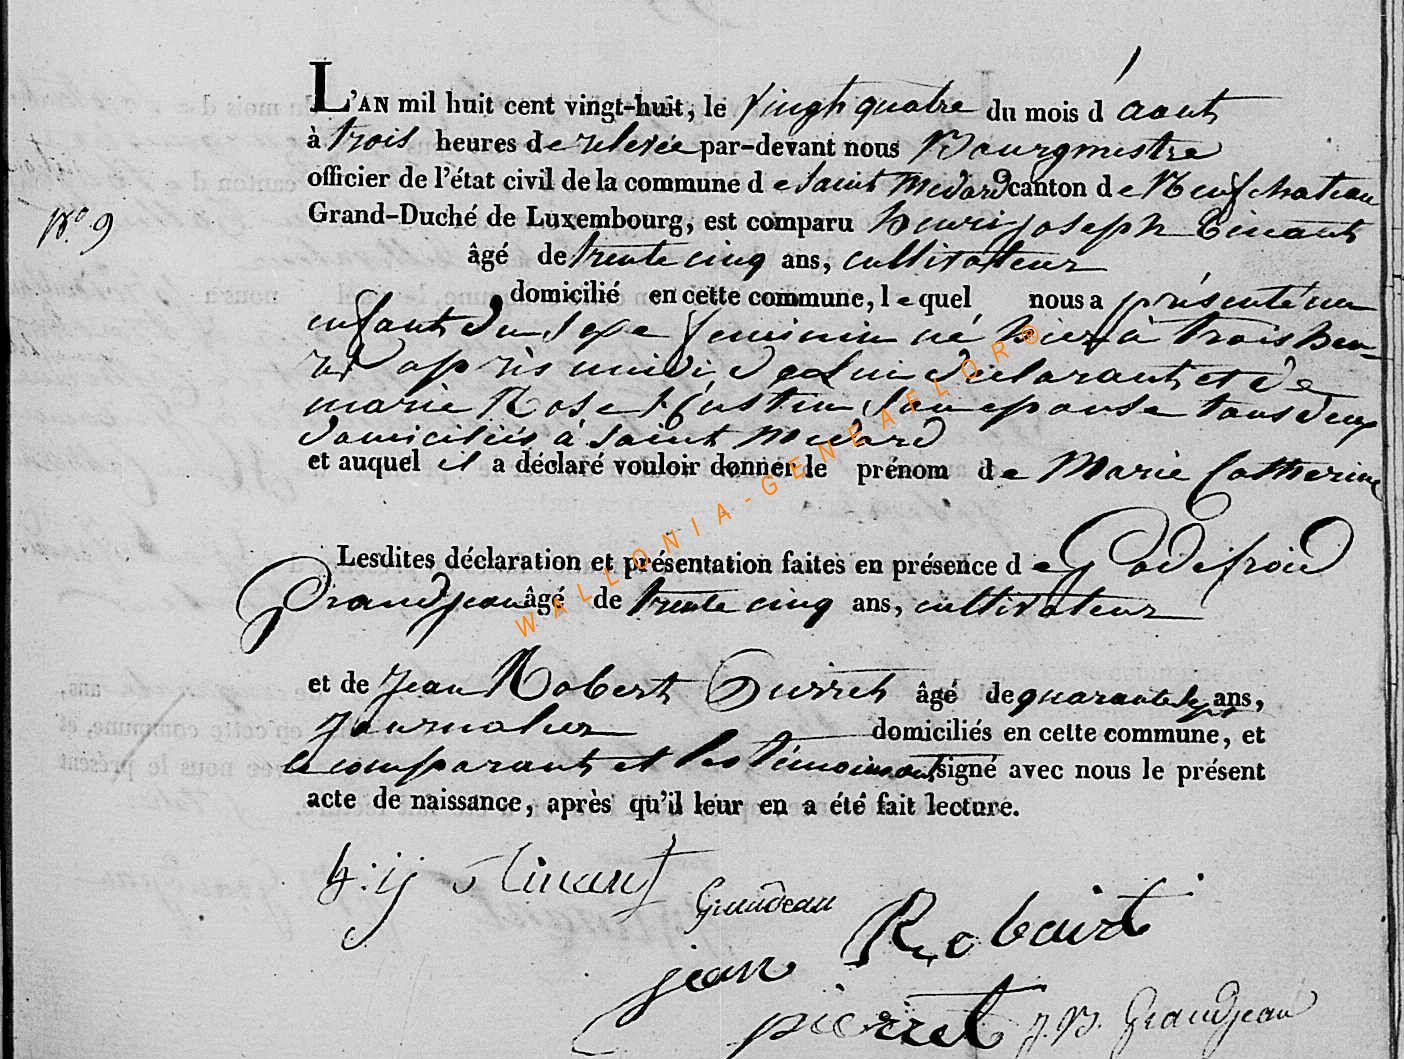 L'AN mil huit cent vingt-huit, le vingt quatre du mois d'aout
à trois heures de relevée par-devant nous Bourgmestre
officier de l'état civil de la commune de Saint Medard canton de Neufchateau
N° 9
Grand-Duché de Luxembourg, est comparu henri joseph Tinant
âgé de trente cinq ans, cultivateur
domicilié en cette commune, lequel nous a présenté un
enfant du Sexe feminin né hier à trois heu-
res apres midi, de lui déclarant et de
marie Rose Son epouse tous deux
domiciliés à Saint Medard
et auquel il a déclaré vouloir donner le prénom de Marie Catherine
Lesdites déclaration et présentation faites en présence de Godefroid
Grandjean âgé de trente cinq ans, cultivateur
et de Jean Robert Pierret âgé de quarante sept ans,
journalier domiciliés en cette commune, et
le comparant et les témoins ont signé avec nous le présent
acte de naissance, après qu'il leur en a été fait lecture.
h: j: Tinant
Grandjean
jean Robairt
pierret J. B. Grandjean
WALLONIA-GENEAFLOR®